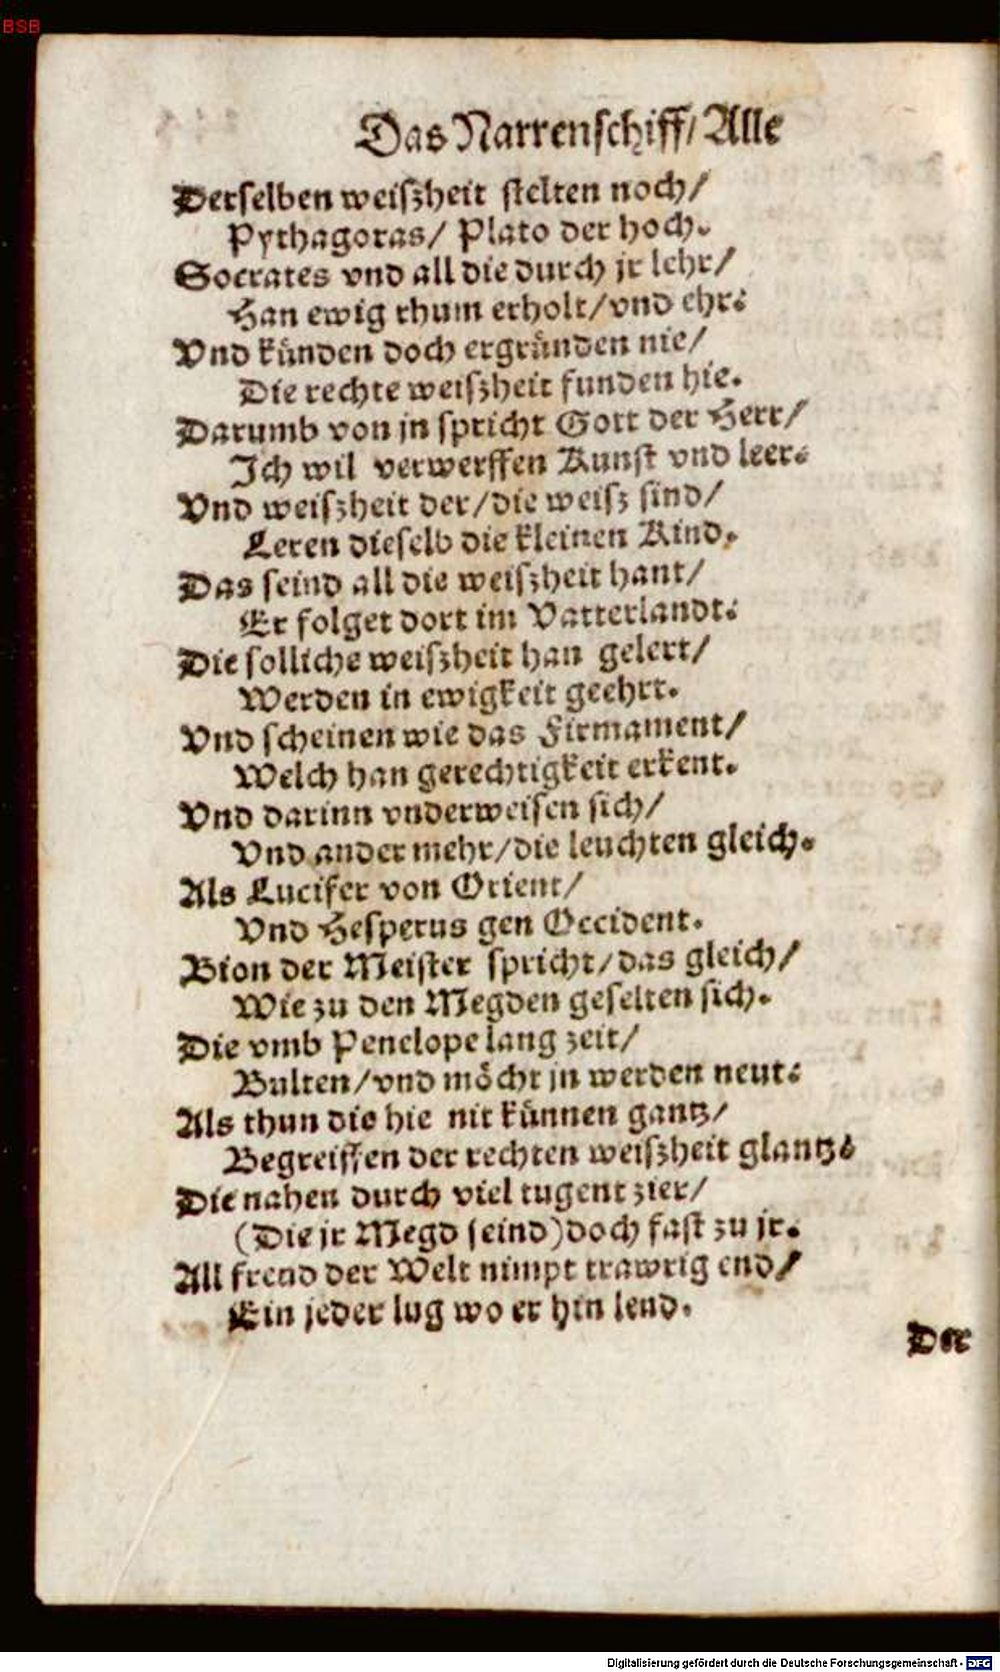 BSB
Das Narrenschiff/ Alle
Derselben weißheit stelten noch/
Pythagoras/ Plato der hoch.
Socrates vnd all die durch jr lehr/
Han ewig rhum erholt/ vnd ehr:
Vnd künden doch ergründen nie/
Die rechte weißheit funden hie.
Darumb von jn spricht Gott der Herr/
Ich wil verwerffen Kunst vnd leer:
Vnd weißheit der/ die weiß sind/
Leren dieselb die kleinen Kind.
Das seind all die weißheit hant/
Er folget dort im Vatterlandt:
Die solliche weißheit han gelert/
Werden in ewigkeit geehrt.
Vnd scheinen wie das Firmament/
Welch han gerechtigkeit erkent.
Vnd darinn vnderweisen sich/
Vnd ander mehr/ die leuchten gleich.
Als Lucifer von Orient/
Vnd Hesperus gen Occident.
Bion der Meister spricht/ das gleich/
Wie zu den Megden geselten sich.
Die vmb Penelope lang zeit/
Bulten/ vnd möcht jn werden neut:
Als thun die hie nit künnen gantz/
Begreiffen der rechten weißheit glantz:
Die nahen durch viel tugent zier/
(Die jr Megd seind) doch fast zu jr.
All freud der Welt nimpt trawrig end/
Ein jeder lug wo er hin lend.
Der
Digitalisierung gefördert durch die Deutsche Forschungsgemeinschaft - DFG